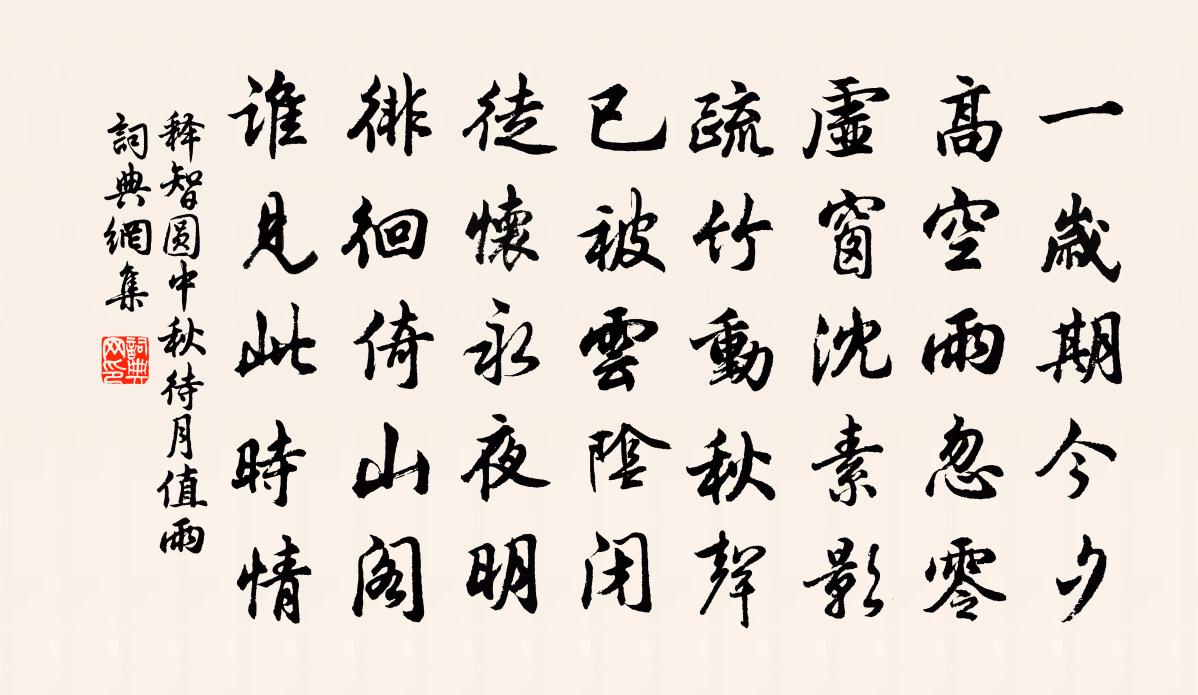 一歲期今夕
高空雨忽零
虛窗沈素影
疏竹動秋聲
已被雲陰閉
徒懷永夜明
徘徊倚山閣
誰見此時情
释智圆中秋待月值雨
詞典網集
詞典网印